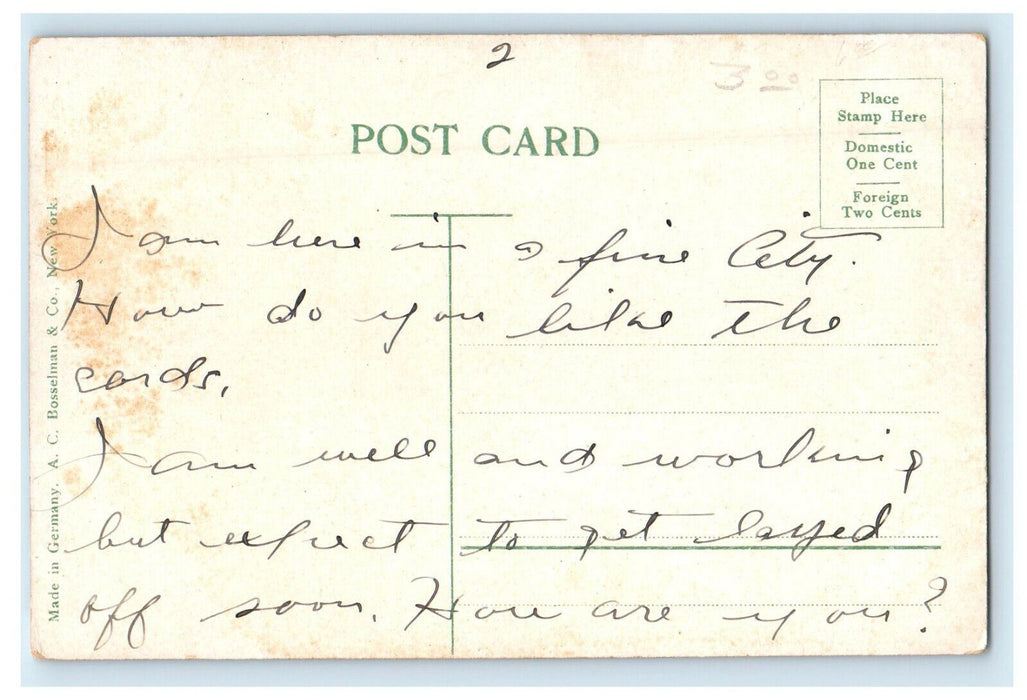 2
3 00
POST CARD
Place
Stamp Here
Domestic
One Cent
Foreign
Two Cents
I am here in a fine City.
How do you like the
cards.
I am well and working
but expect to get layed
off soon. How are you?
Made in Germany. A. C. Bosselman & Co., New York.